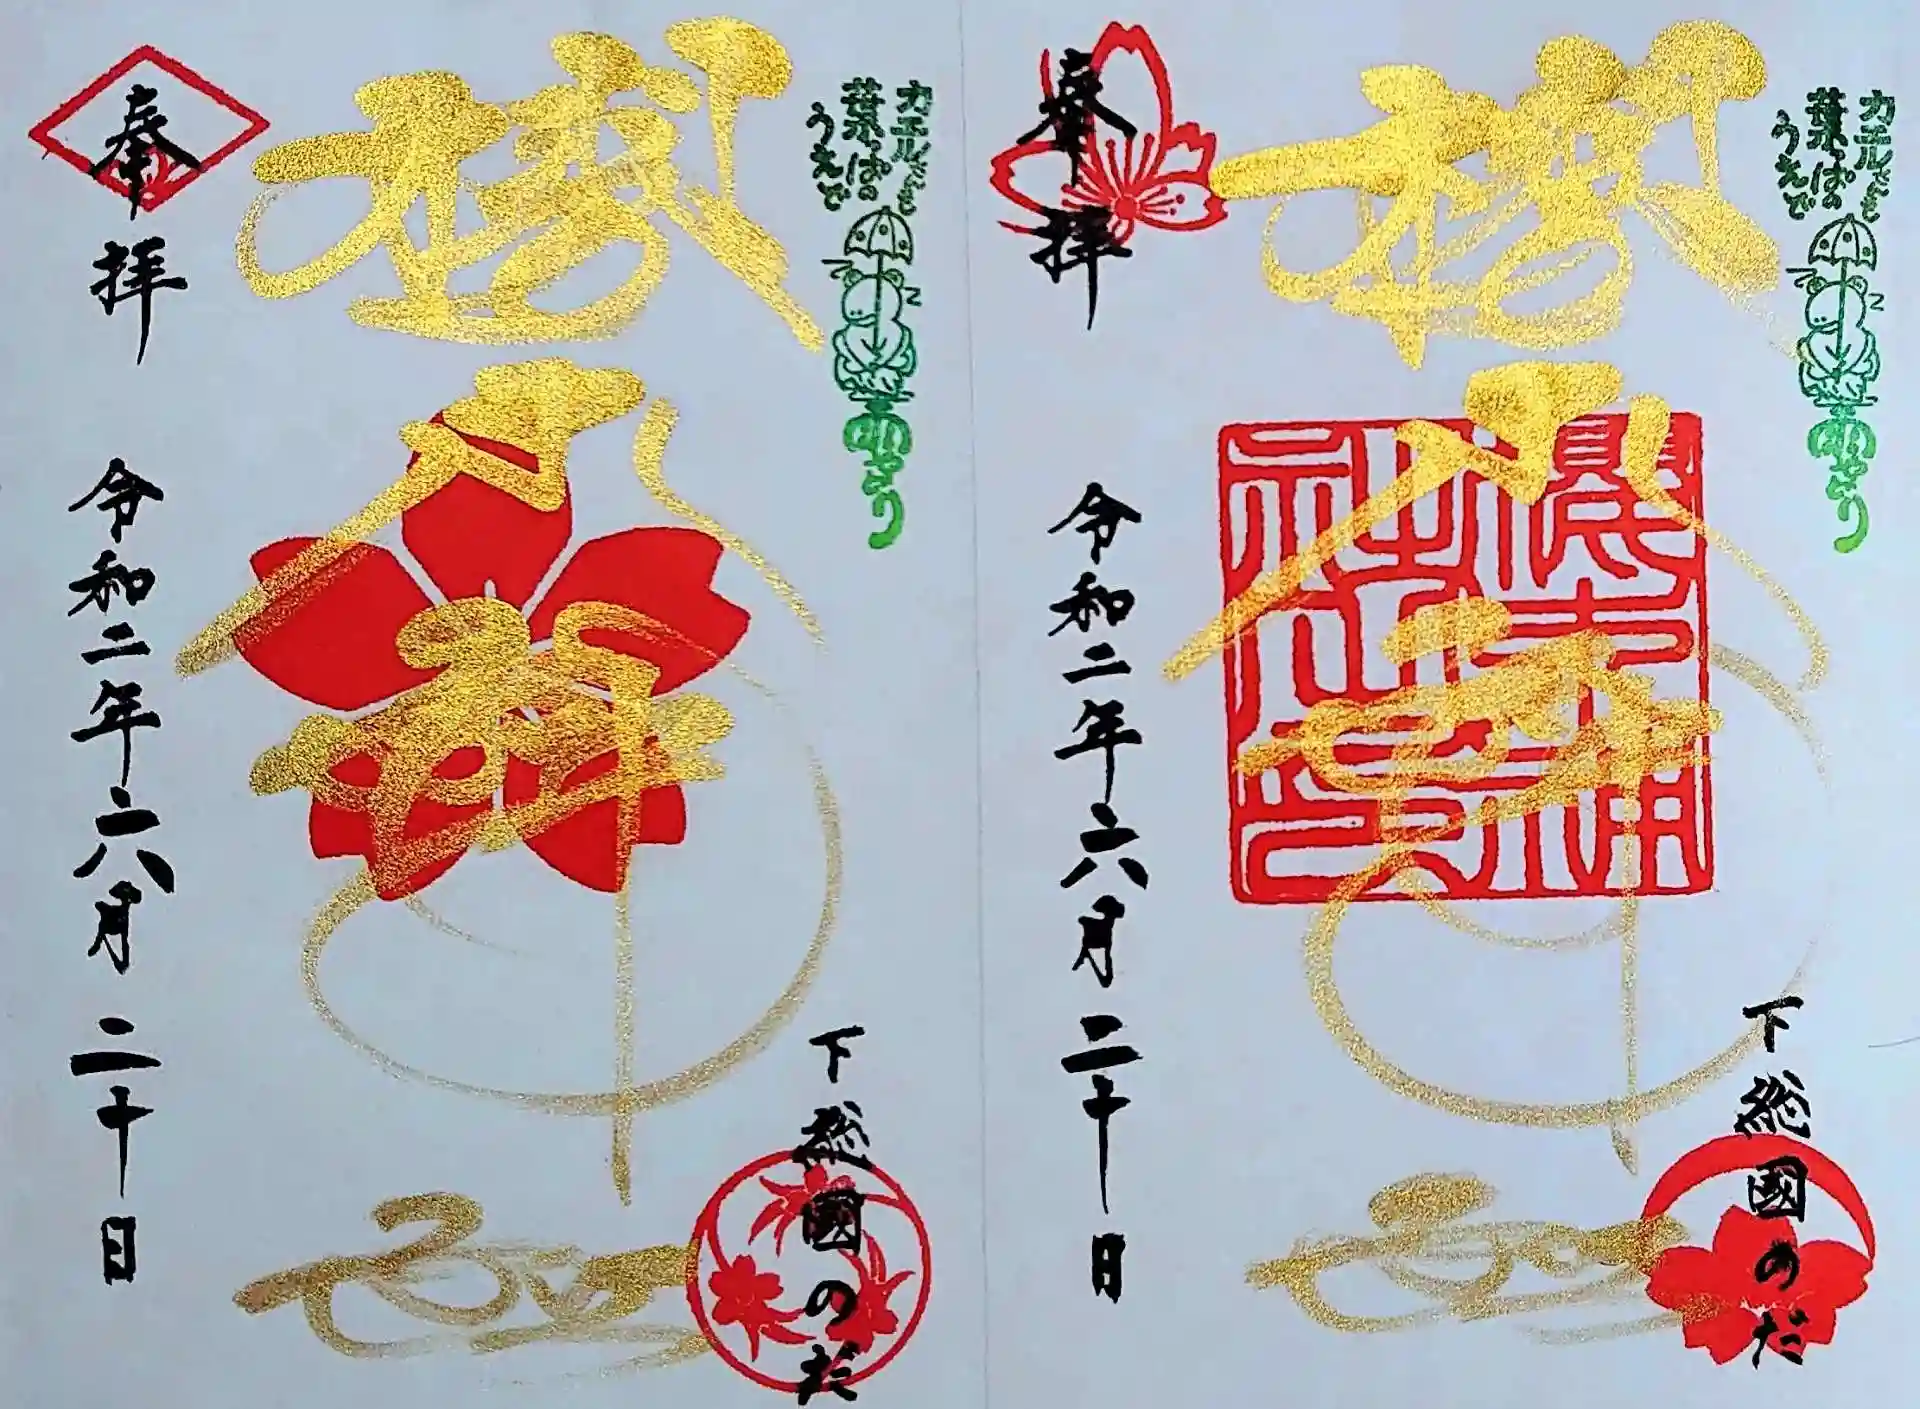 カエルさんも
葉っぱの
うえで
雨やどり
櫻木神社
奉拝
令和二年六月二十日
下総國のだ
カエルさんも
葉っぱの
うえで
雨やどり
櫻木神社
奉拝
令和二年六月二十日
下総國のだ